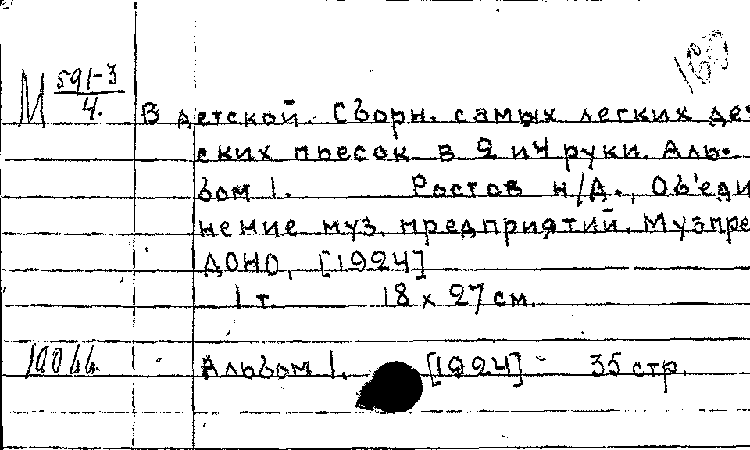 М 591-3
4.
В детской. Сборн. самых легких дет
ских пьесок в 2 и 4 руки. Аль-
бом 1. Ростов н/Д., Объеди
нение муз. предприятий. Музпре
ДОНО, [1924]
1 т. 18 x 27 см.
Альбом 1. [1924] - 35 стр.